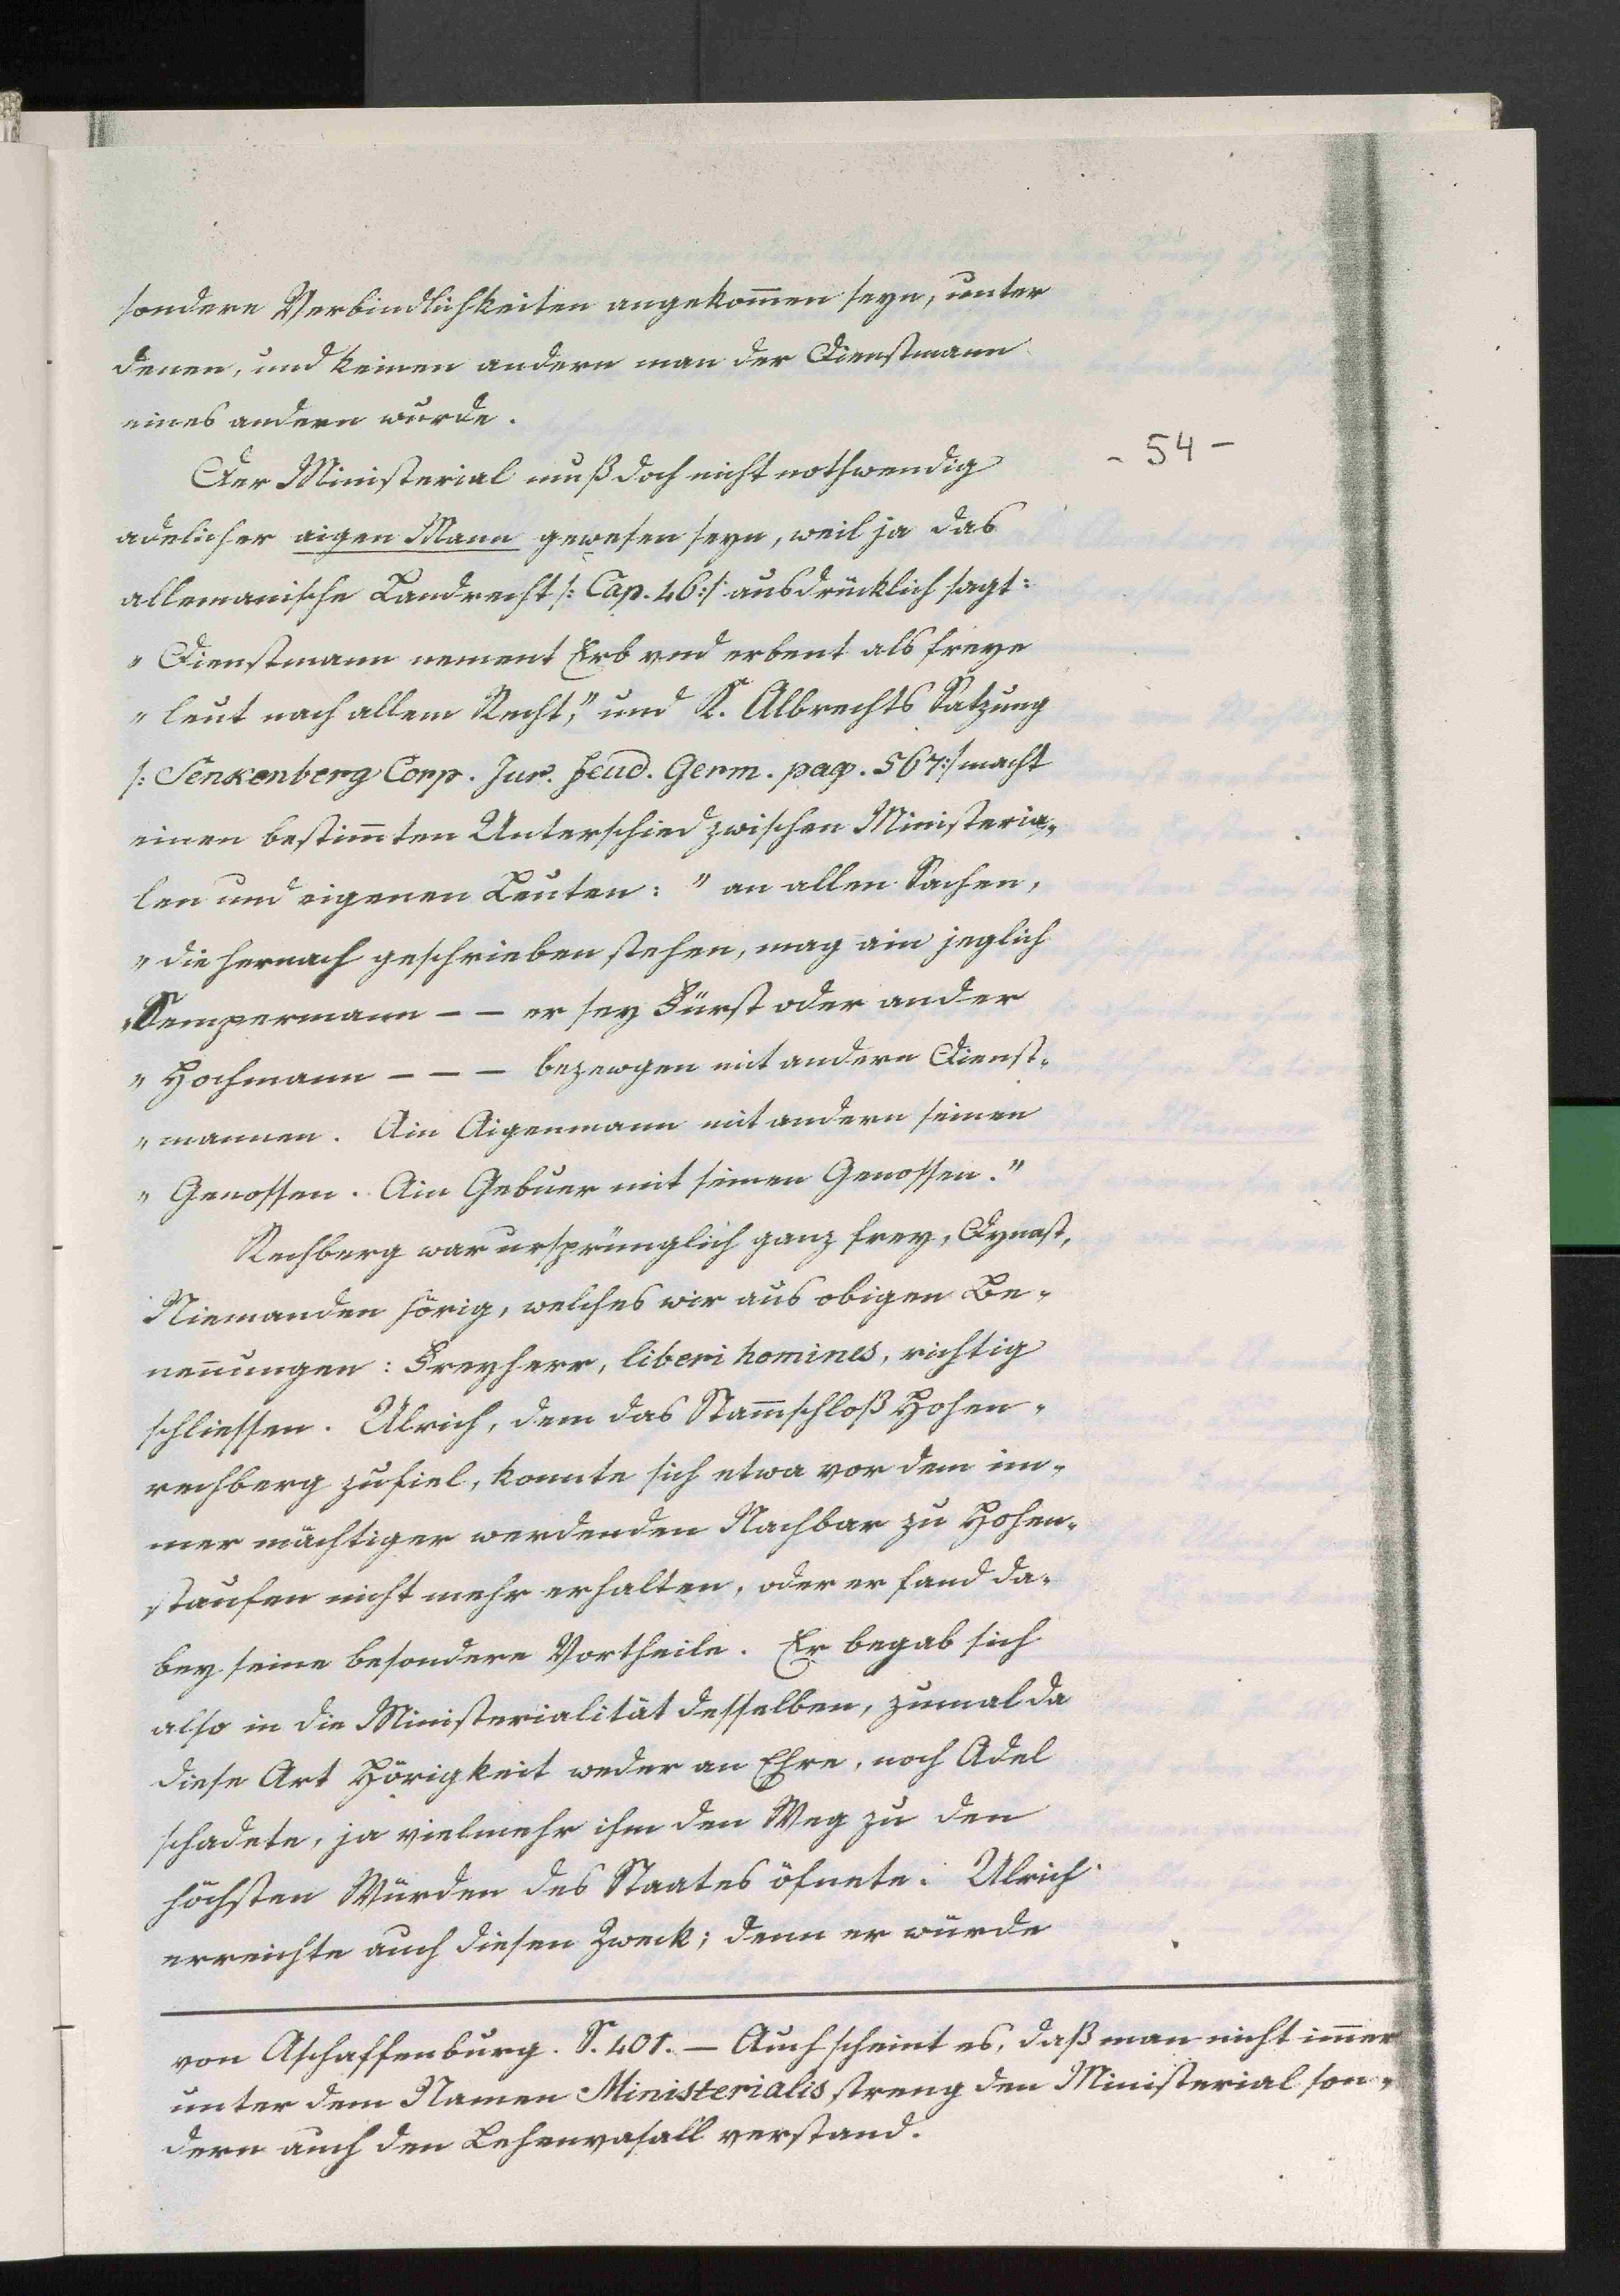 sondere Verbindlichkeiten angekom̄en seyn, unter
denen, und keinen andern man der Dienstmann
eines andern wurde.
- 54 -
Der Ministerial muß doch nicht nothwendig
adelicher aigen Mann gewesen seyn, weil ja das
allemanische Landrecht /: Cap. 46 :/ ausdrücklich sagt:
„Dienstmann nement Erb vnd erbent als freye
„leut nach allem Recht," und K. Albrechts Satzung
/: Senkenberg Corp. Jur. feud. Germ. pag. 567 :/ macht
einen bestim̄ten Unterschied zwischen Ministeria-
len und eigenen Leuten: "an allen Sachen,
„die hernach geschrieben stehen, mag ain jeglich
„Sempermann – – er sey Fürst oder ander
„Hochmann – – – bezewgen mit andern Dienst-
„mannen. Ain Aigenmann mit andern seinen
„Genossen. Ain Gebuer mit seinen Genossen."
Rechberg war ursprünglich ganz frey, Dynast,
Niemanden hörig, welches wir aus obigen Be-
nen̄ungen: Freyherr, liberi homines, richtig
schliessen. Ulrich, dem das Stam̄schloß Hohen-
rechberg zufiel, konnte sich etwa vor dem im-
mer mächtiger werdenden Nachbar zu Hohen-
staufen nicht mehr erhalten, oder er fand da-
bey seine besondere Vortheile. Er begab sich
also in die Ministerialität desselben, zumal da
diese Art Hörigkeit weder an Ehre, noch Adel
schadete, ja vielmehr ihm den Weg zu den
höchsten Würden des Staates öfnete. Ulrich
erreichte auch diesen Zweck; denn er wurde
von Aschaffenburg. S. 401. – Auch scheint es, daß man nicht im̄er
unter dem Namen Ministerialis streng den Ministerial son-
dern auch den Lehenvasall verstand.